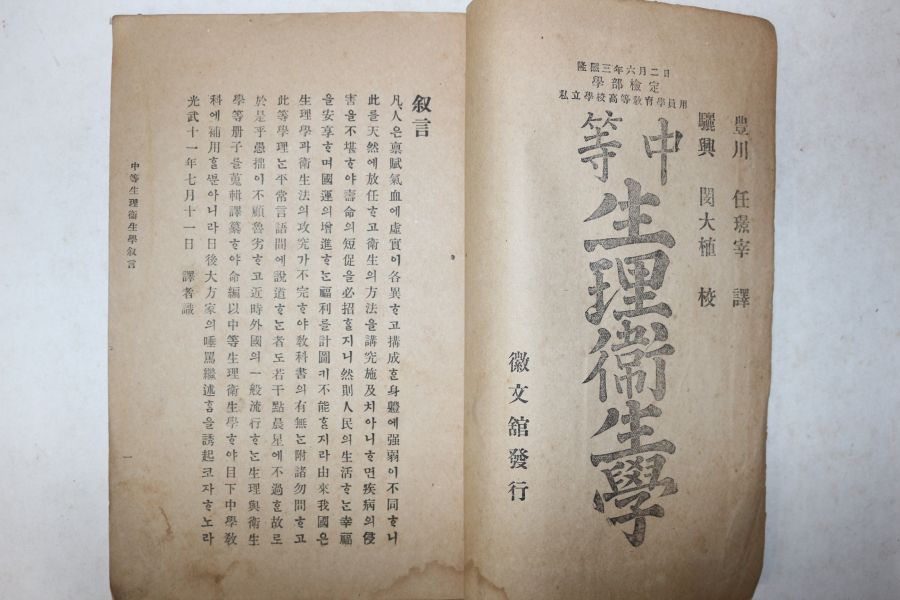 隆熙三年六月二日
學部檢定
私立學校高等敎育學員用
豊川 任璟宰 譯
驪興 閔大植 校
中等
生理衛生學
徽文舘發行
叙言
凡人은禀賦氣血에虛實이各異ᄒᆞ고搆成ᄒᆞᆫ身軆에强弱이不同ᄒᆞ니
此를天然에放任ᄒᆞ고衛生의方法을講究施及치아니ᄒᆞ면疾病의侵
害을不堪ᄒᆞ야壽命의短促을必招ᄒᆞᆯ지니然則人民의生活ᄒᆞᄂᆞᆫ幸福
을安享ᄒᆞ며國運의增進ᄒᆞᄂᆞᆫ福利를計圖키不能ᄒᆞᆯ지라由來我國은
生理學과衛生法의攻究가不完ᄒᆞ야敎科書의有無ᄂᆞᆫ附諸勿問ᄒᆞ고
此等學理ᄂᆞᆫ平常言語間에說道ᄒᆞᄂᆞᆫ者도若干點晨星에不過ᄒᆞᆫ故로
於是乎愚拙이不顧魯劣ᄒᆞ고近時外國의一般流行ᄒᆞᄂᆞᆫ生理與衛生
學等册子를蒐輯譯纂ᄒᆞ야命編以中等生理衛生學ᄒᆞ야目下中學敎
科에補用ᄒᆞᆯᄲᅮᆫ아니라日後大方家의唾罵繼述ᄒᆞᆷ을誘起코자ᄒᆞ노라
光武十一年七月十一日 譯者識
中等生理衛生學叙言
一